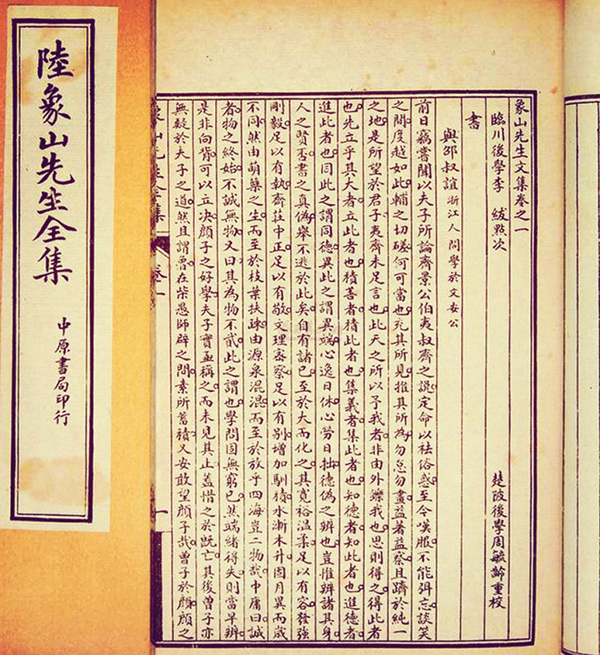 陸象山先生全集
中原書局印行
象山先生文集卷之一
臨川後學李 紱點次 楚陂後學周毓齡重校
書
與邵叔誼 浙江人問學於文安公
前日竊嘗聞以夫子所論齊景公伯夷叔齊之說定命以袪俗惑至今嘆服不能弭忘談笑
之間度越如此輔之切磋何可當也充其所見推其所為勿怠勿畫益著益察日躋於純一
之地是所望於君子夷齊未足言也此天之所以予我者非由外鑠我也思則得之得此者
也先立乎其大者立此者也積善者積此者也集義者集此者也知德者知此者也進德者
進此者也同此之謂同德異此之謂異端心逸日休心勞日拙德偽之辨也豈惟辨諸其身
人之賢否書之真偽舉不逃於此矣自有諸己至於大而化之其寬裕溫柔足以有容發強
剛毅足以有執齋莊中正足以有敬文理密察足以有別增加馴積水漸木升固月異而歲
不同然由萌蘖之生而至於枝葉扶疎由源泉混混而至於放乎四海豈二物哉中庸曰誠
者物之終始不誠無物又曰其為物不貳此之謂也學問固無窮已然端緒得失則當早辨
是非向背可以立決顏子之好學夫子實亟稱之而未見其止蓋惜之於既亡其後曾子亦
無疑於夫子之道然且謂魯在柴愚師辟之間素所蓄積又安敢望顏子哉曾子於顏顏之
象山先生全集 卷一 一